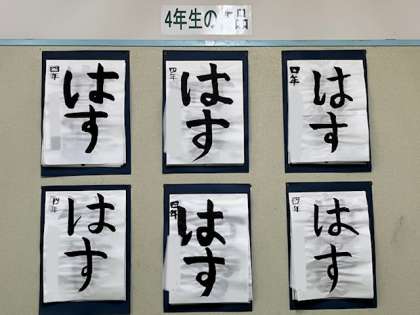 4年生の 品
四年
はす
四年
はす
四年
はす
四年
はす
四年
はす
四年
はす